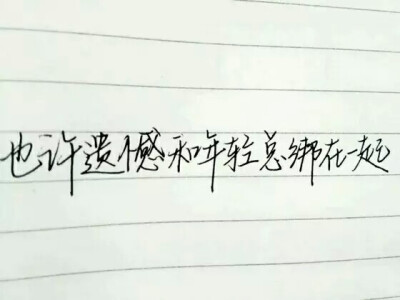 也许遗憾和年轻总绑在一起